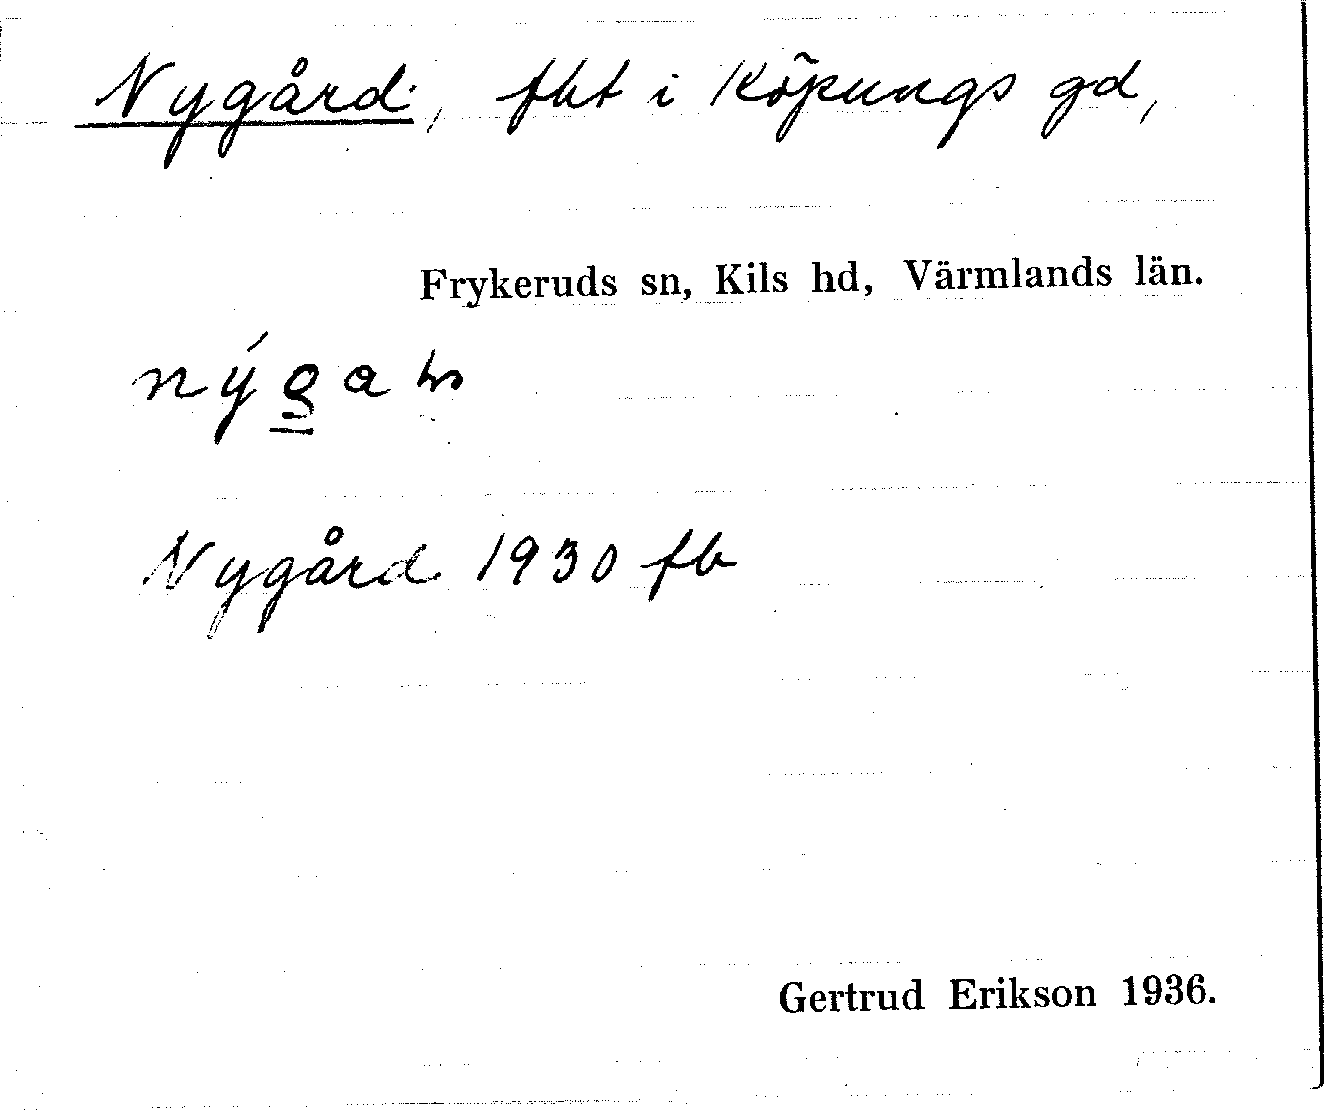 Nygård, fkt i Köpungs gd,
Frykeruds sn, Kils hd, Värmlands län.
Nygård 1930 fb
Gertrud Erikson 1936.